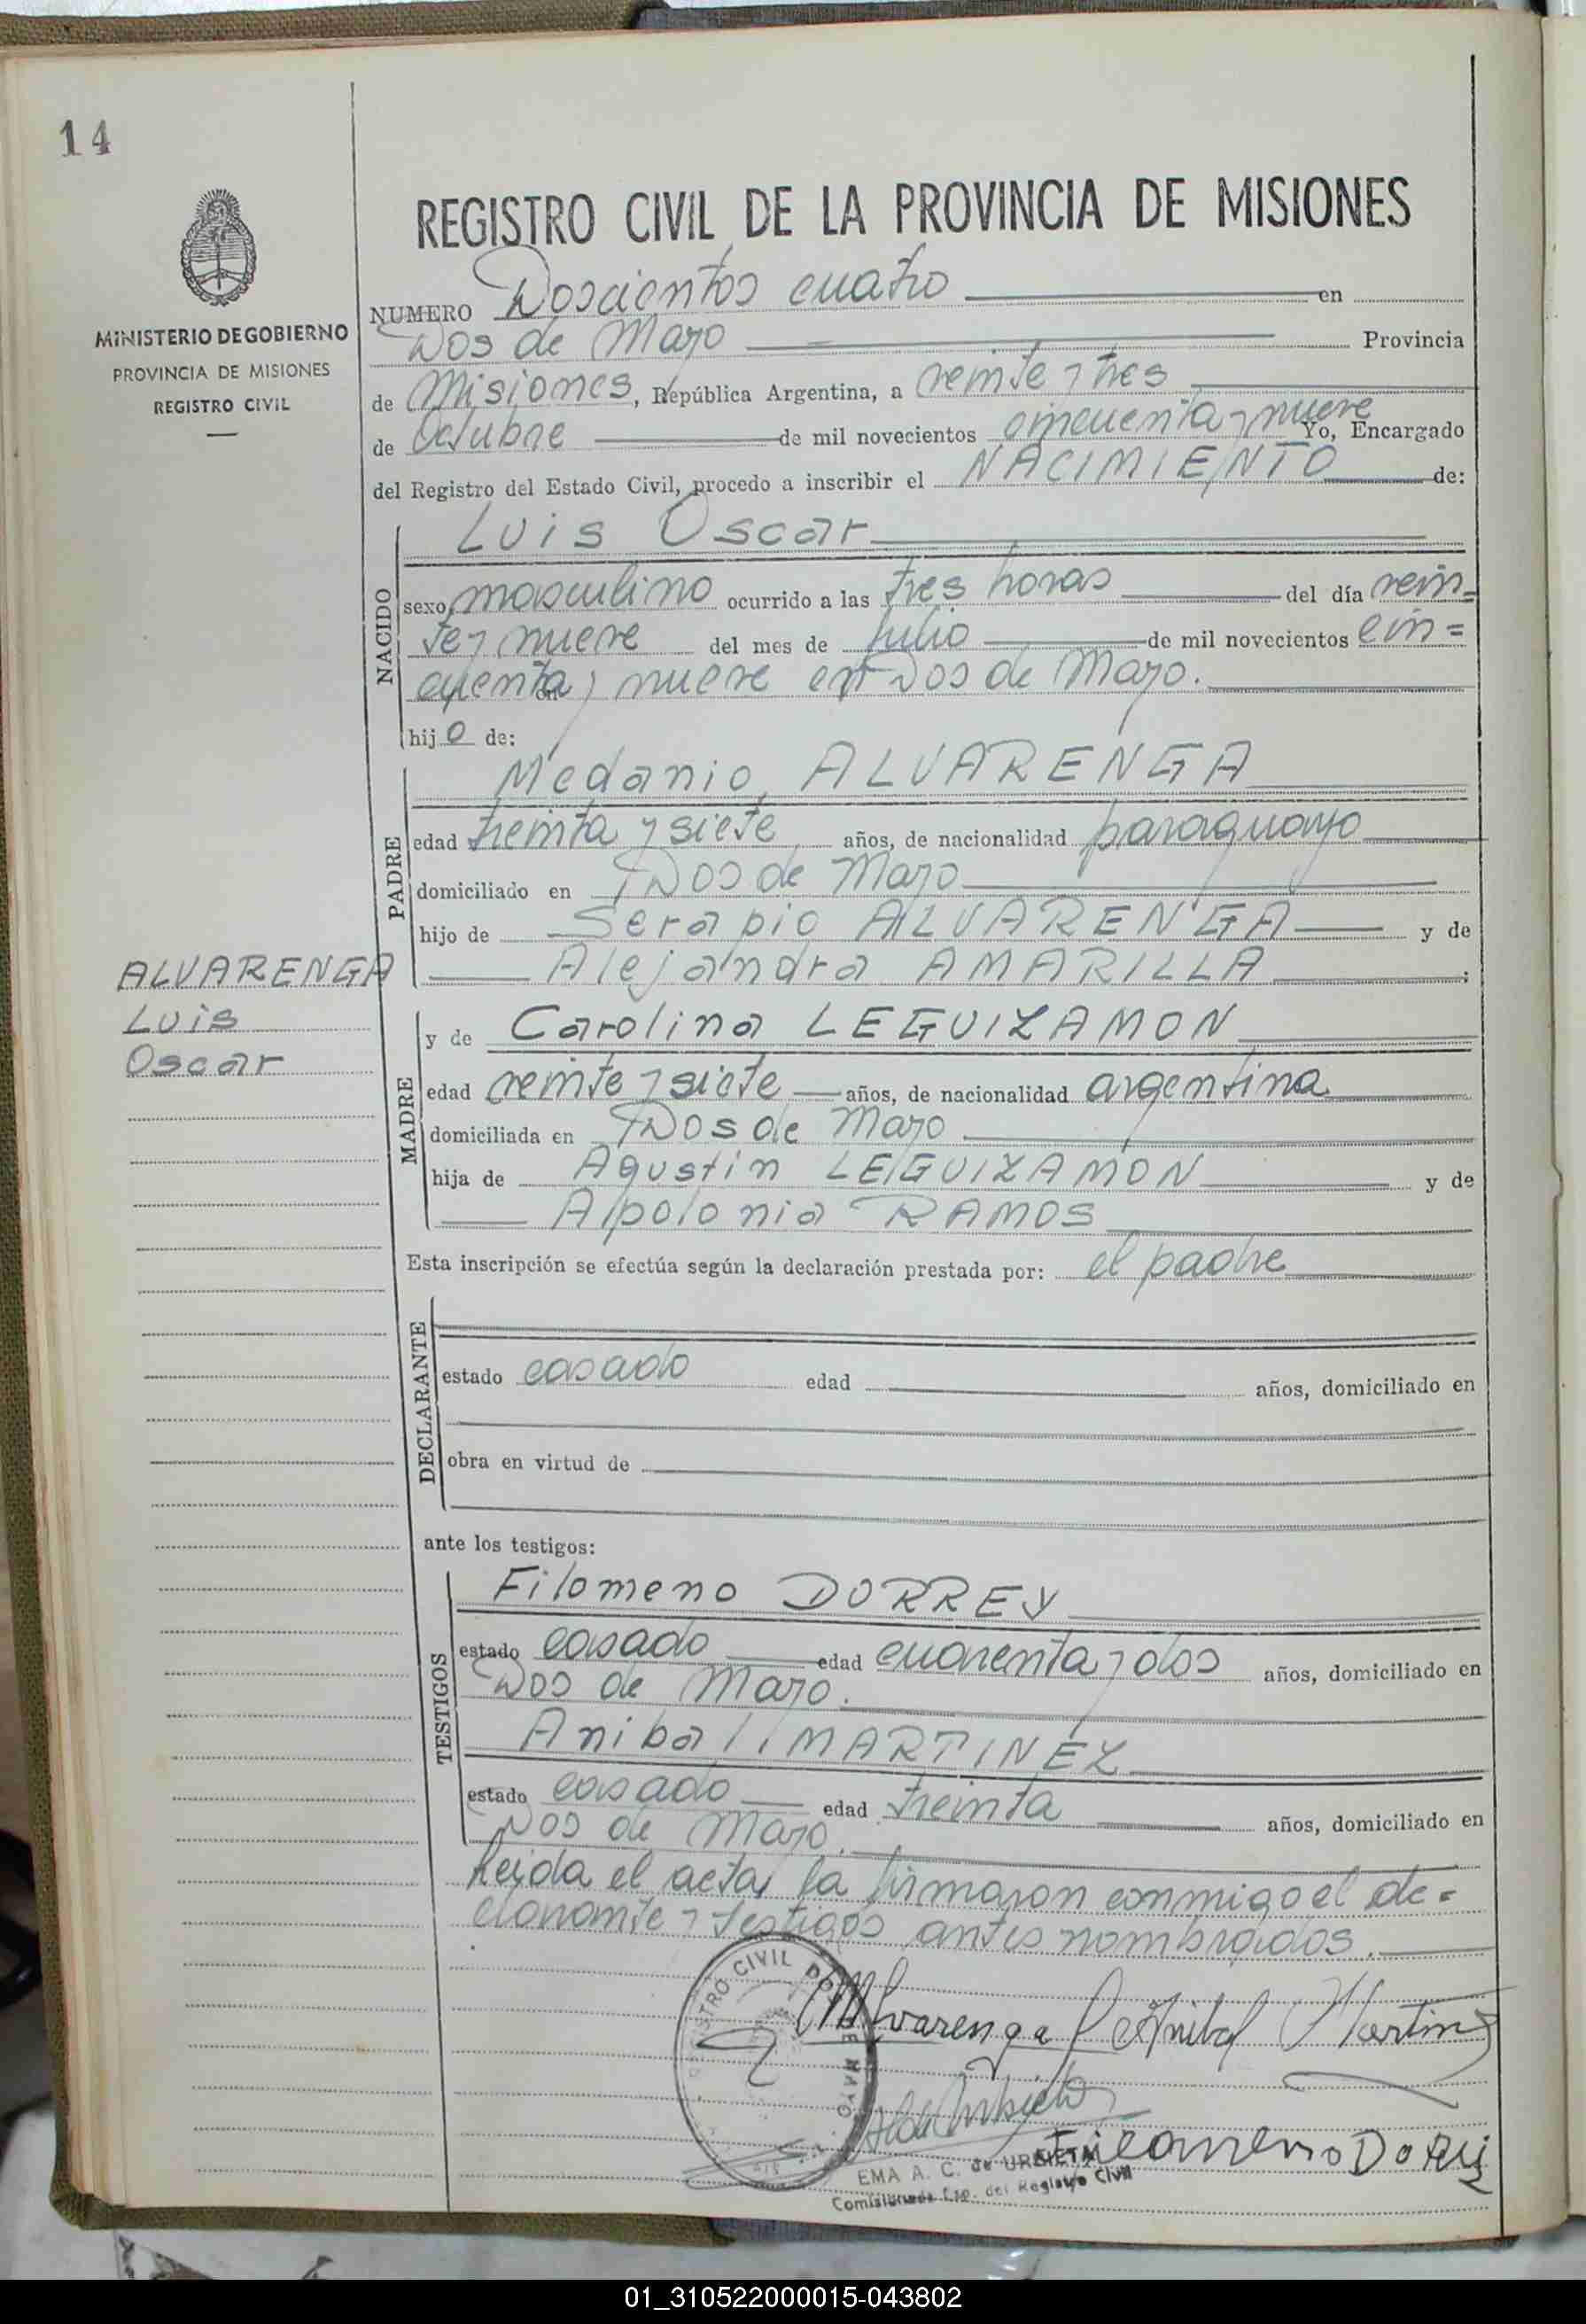 14
REGISTRO CIVIL DE LA PROVINCIA DE MISIONES
MINISTERIO DE GOBIERNO
PROVINCIA DE MISIONES
REGISTRO CIVIL
NUMERO Doscientos cuatro en
Dos de Mayo Provincia
de Misiones, República Argentina, a veinte y tres
de Octubre de mil novecientos cincuenta y nueve Yo, Encargado
del Registro del Estado Civil, procedo a inscribir el NACIMIENTO de:
NACIDO
Luis Oscar
sexo masculino ocurrido a las tres horas del día vein=
te y nueve del mes de Julio de mil novecientos cin=
cuenta y nueve en Dos de Mayo.
hijo de:
PADRE
Medanio ALVARENGA
edad treinta y siete años, de nacionalidad paraguayo
domiciliado en Dos de Mayo
hijo de Serapio ALVARENGA y de
Alejandra AMARILLA ;
ALVARENGA
Luis
Oscar
MADRE
y de Carolina LEGUIZAMON
edad veinte y siete años, de nacionalidad argentina
domiciliada en Dos de Mayo
hija de Agustin LEGUIZAMON y de
Apolonia RAMOS
Esta inscripción se efectúa según la declaración prestada por: el padre
DECLARANTE
estado casado edad años, domiciliado en
obra en virtud de
ante los testigos:
TESTIGOS
Filomeno DORREY
estado casado edad cuarenta y dos años, domiciliado en
Dos de Mayo.
Anibal MARTINEZ
estado casado edad treinta años, domiciliado en
Dos de Mayo.
Leida el acta, la firmaron conmigo el de=
clarante y testigos antes nombrados.
REGISTRO CIVIL DOS DE MAYO
MAlvarenga Anibal Martinez
EMA A. C. de URBIETA
Comisionada Esp. del Registro Civil
01_310522000015-043802